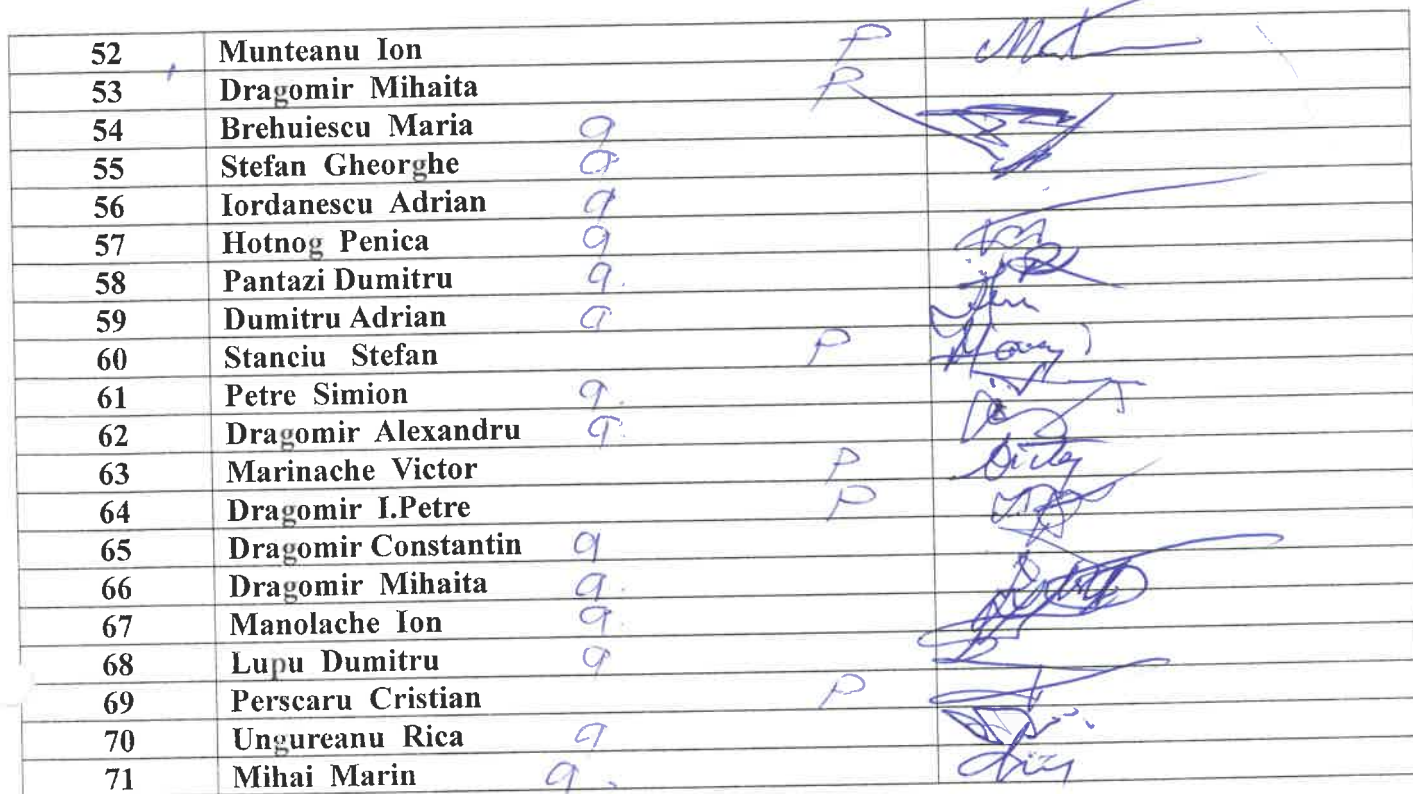 52 Munteanu Ion P
53 Dragomir Mihaita P
54 Brehuiescu Maria a
55 Stefan Gheorghe a
56 Iordanescu Adrian a
57 Hotnog Penica a
58 Pantazi Dumitru a.
59 Dumitru Adrian a
60 Stanciu Stefan P
61 Petre Simion a.
62 Dragomir Alexandru a.
63 Marinache Victor P
64 Dragomir I.Petre P
65 Dragomir Constantin a
66 Dragomir Mihaita a.
67 Manolache Ion a.
68 Lupu Dumitru a
69 Perscaru Cristian P
70 Ungureanu Rica a
71 Mihai Marin a.